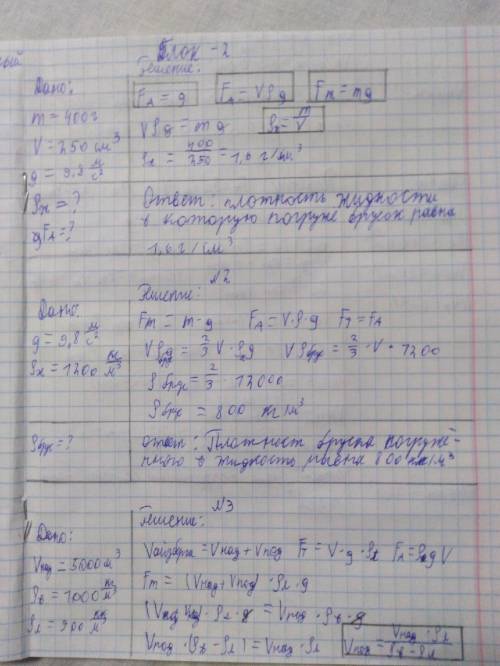 Блок - 2
Дано:
Решение:
m = 400 г
V = 250 см³
g = 9,8 м/с²
ρж = ?
FА = ?
FА = g
FА = Vρg
Fт = mg
Vρg = mg
ρж = m/V
ρж = 400/250 = 1,6 г/см³
Ответ: плотность жидкости
в которую погруже брусок равна
1,6 г/см³
№2
Дано:
g = 9,8 м/с²
ρж = 1200 кг/м³
ρбрус = ?
Решение:
Fт = m · g FА = V · ρ · g Fт = FА
Vρg = 2/3 V · ρжg Vρбрус = 2/3 · V · 1200
ρбрус = 2/3 · 12000
ρбрус = 800 кг/м³
ответ: Плотност бруска погружё-
нного в жидкость равна 800 кг/м³
№3
Дано:
Vнад = 5000 м³
ρв = 1000 кг/м³
ρл = 900 кг/м³
Решение:
Vайзберга = Vнад + Vпод Fт = V · g · ρл FА = ρвgV
Fт = (Vнад + Vпод) · ρл · g
· ρл · g = Vпод · ρв · g
Vпод · (ρв - ρл) = Vнад · ρл
Vпод = Vнад · ρл / ρв - ρл